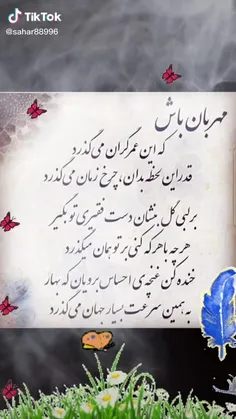 TikTok
@sahar88996
مهربان باش
که این عمر گران می گذرد
قدر این لحظه بدان، چرخ زمان می گذرد
بر لبی گل بنشان دست فقیری تو بگیر
هر چه با هر که کنی بر تو همان میگذرد
خنده کن غنچه‌ی احساس برویان که بهار
به همین سرعت بسیار جهان می گذرد